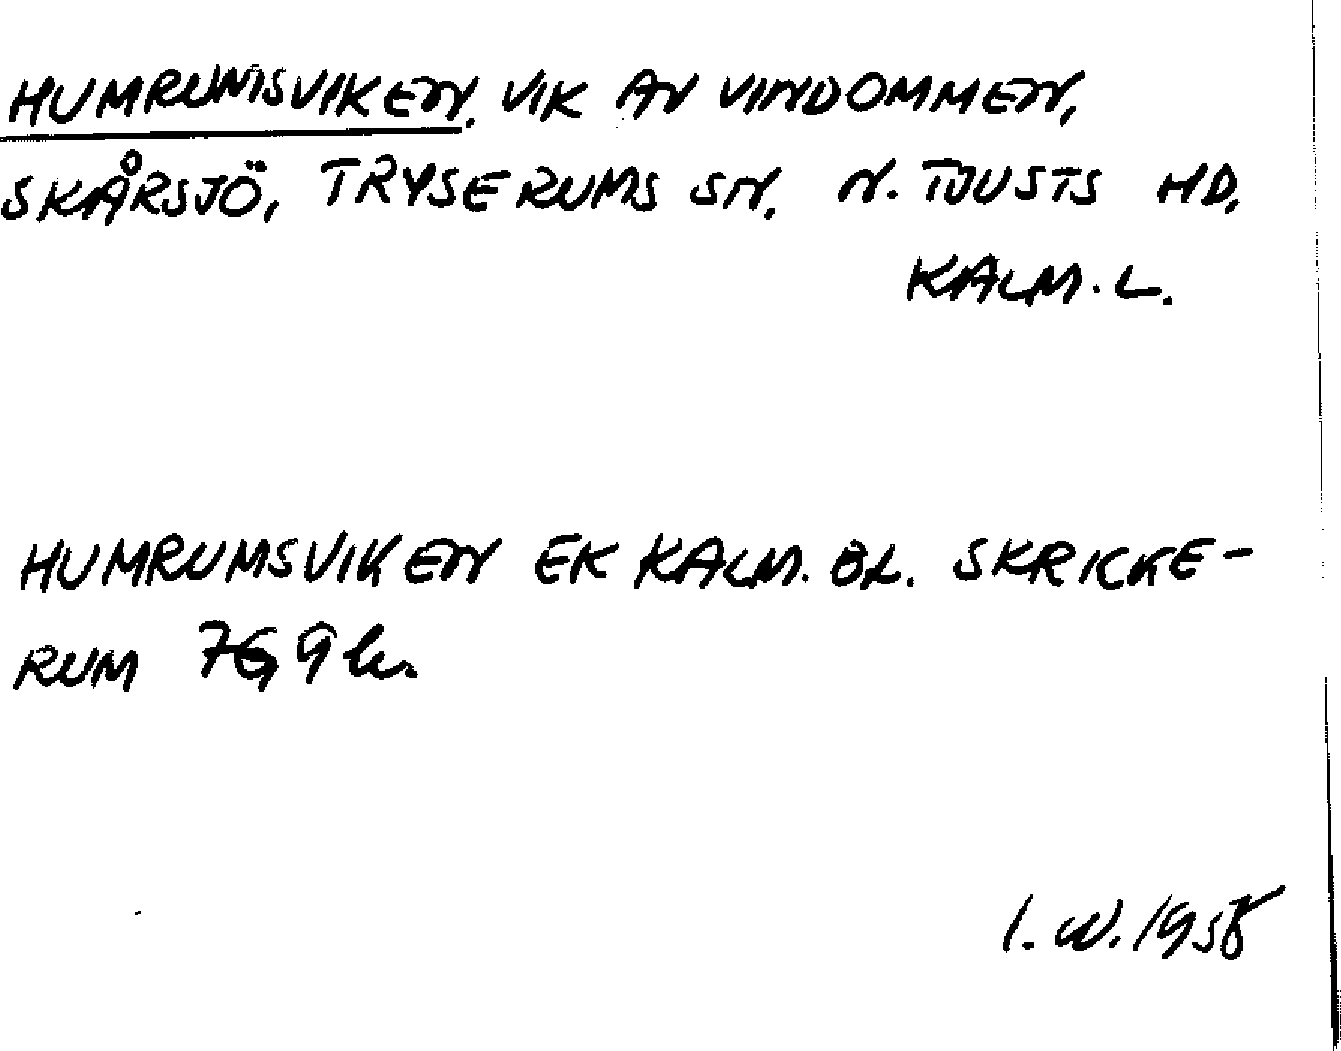 HUMRUMSVIKEN. VIK AV VINDOMMEN,
SKÅRSJÖ, TRYSERUMS SN. N. TJUSTS HD,
KALM. L.
HUMRUMSVIKEN EK KALM. BL. SKRICKE-
RUM
I. W. 1958